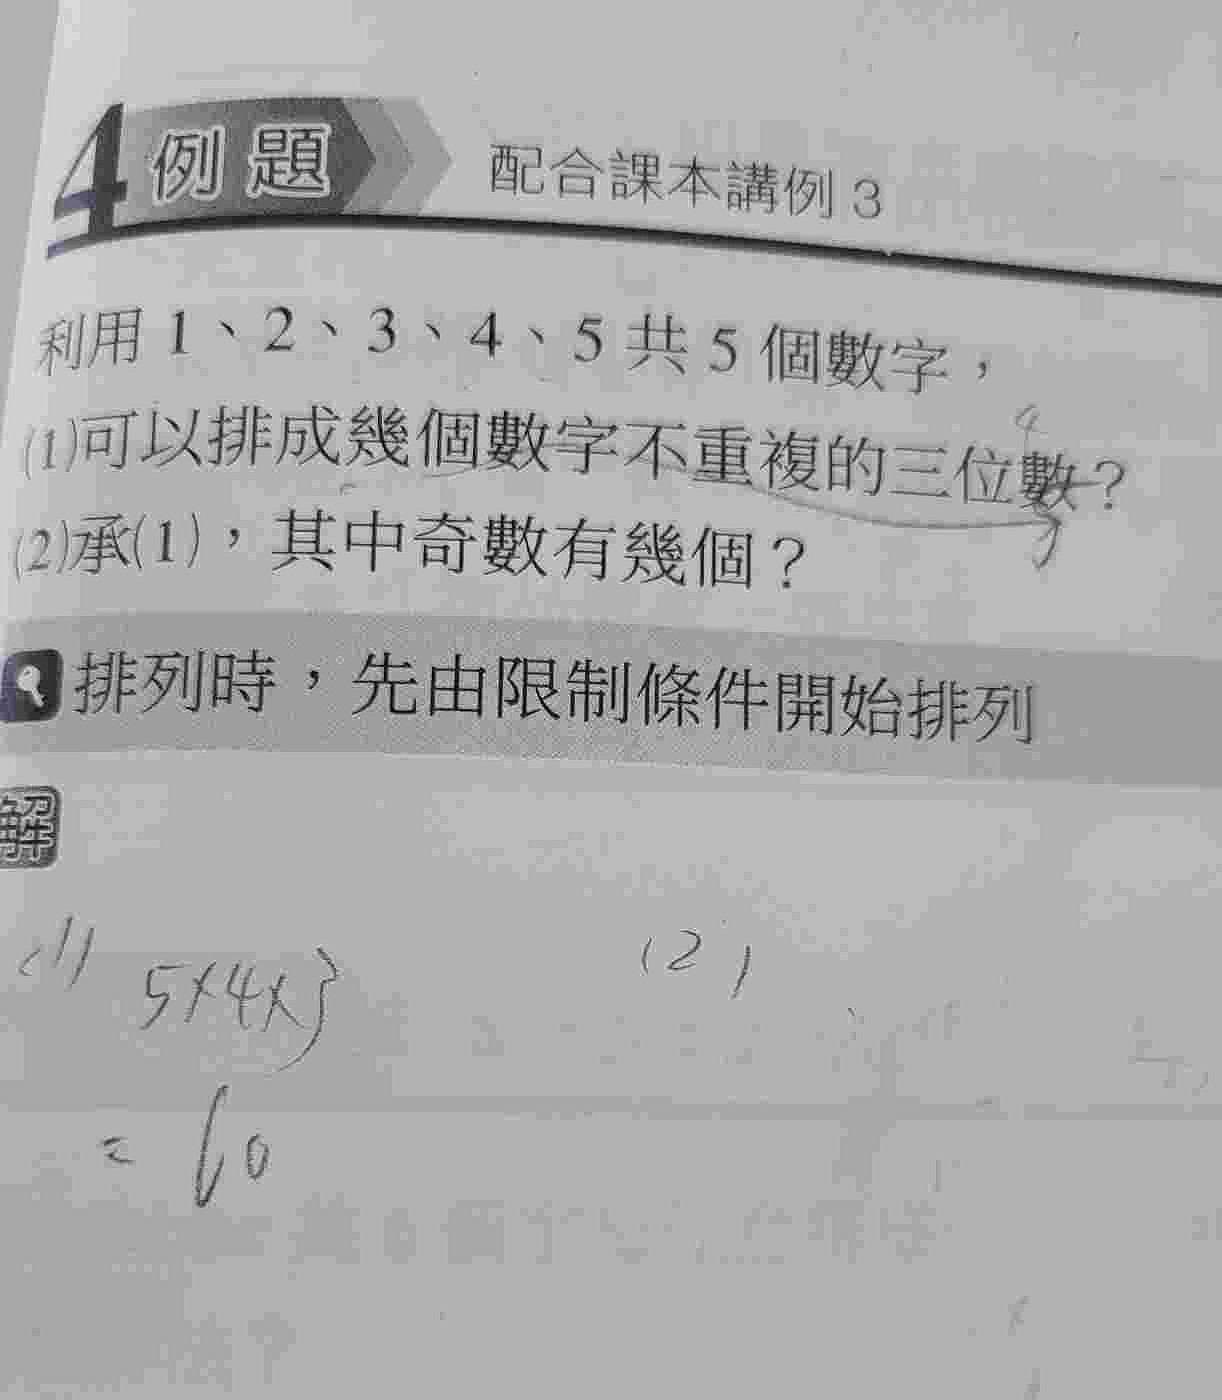 4 例題 配合課本講例 3
利用 1、2、3、4、5 共 5 個數字，
(1)可以排成幾個數字不重複的三位數？
(2)承(1)，其中奇數有幾個？
排列時，先由限制條件開始排列
解
(1) (2)
5×4×3
= 60